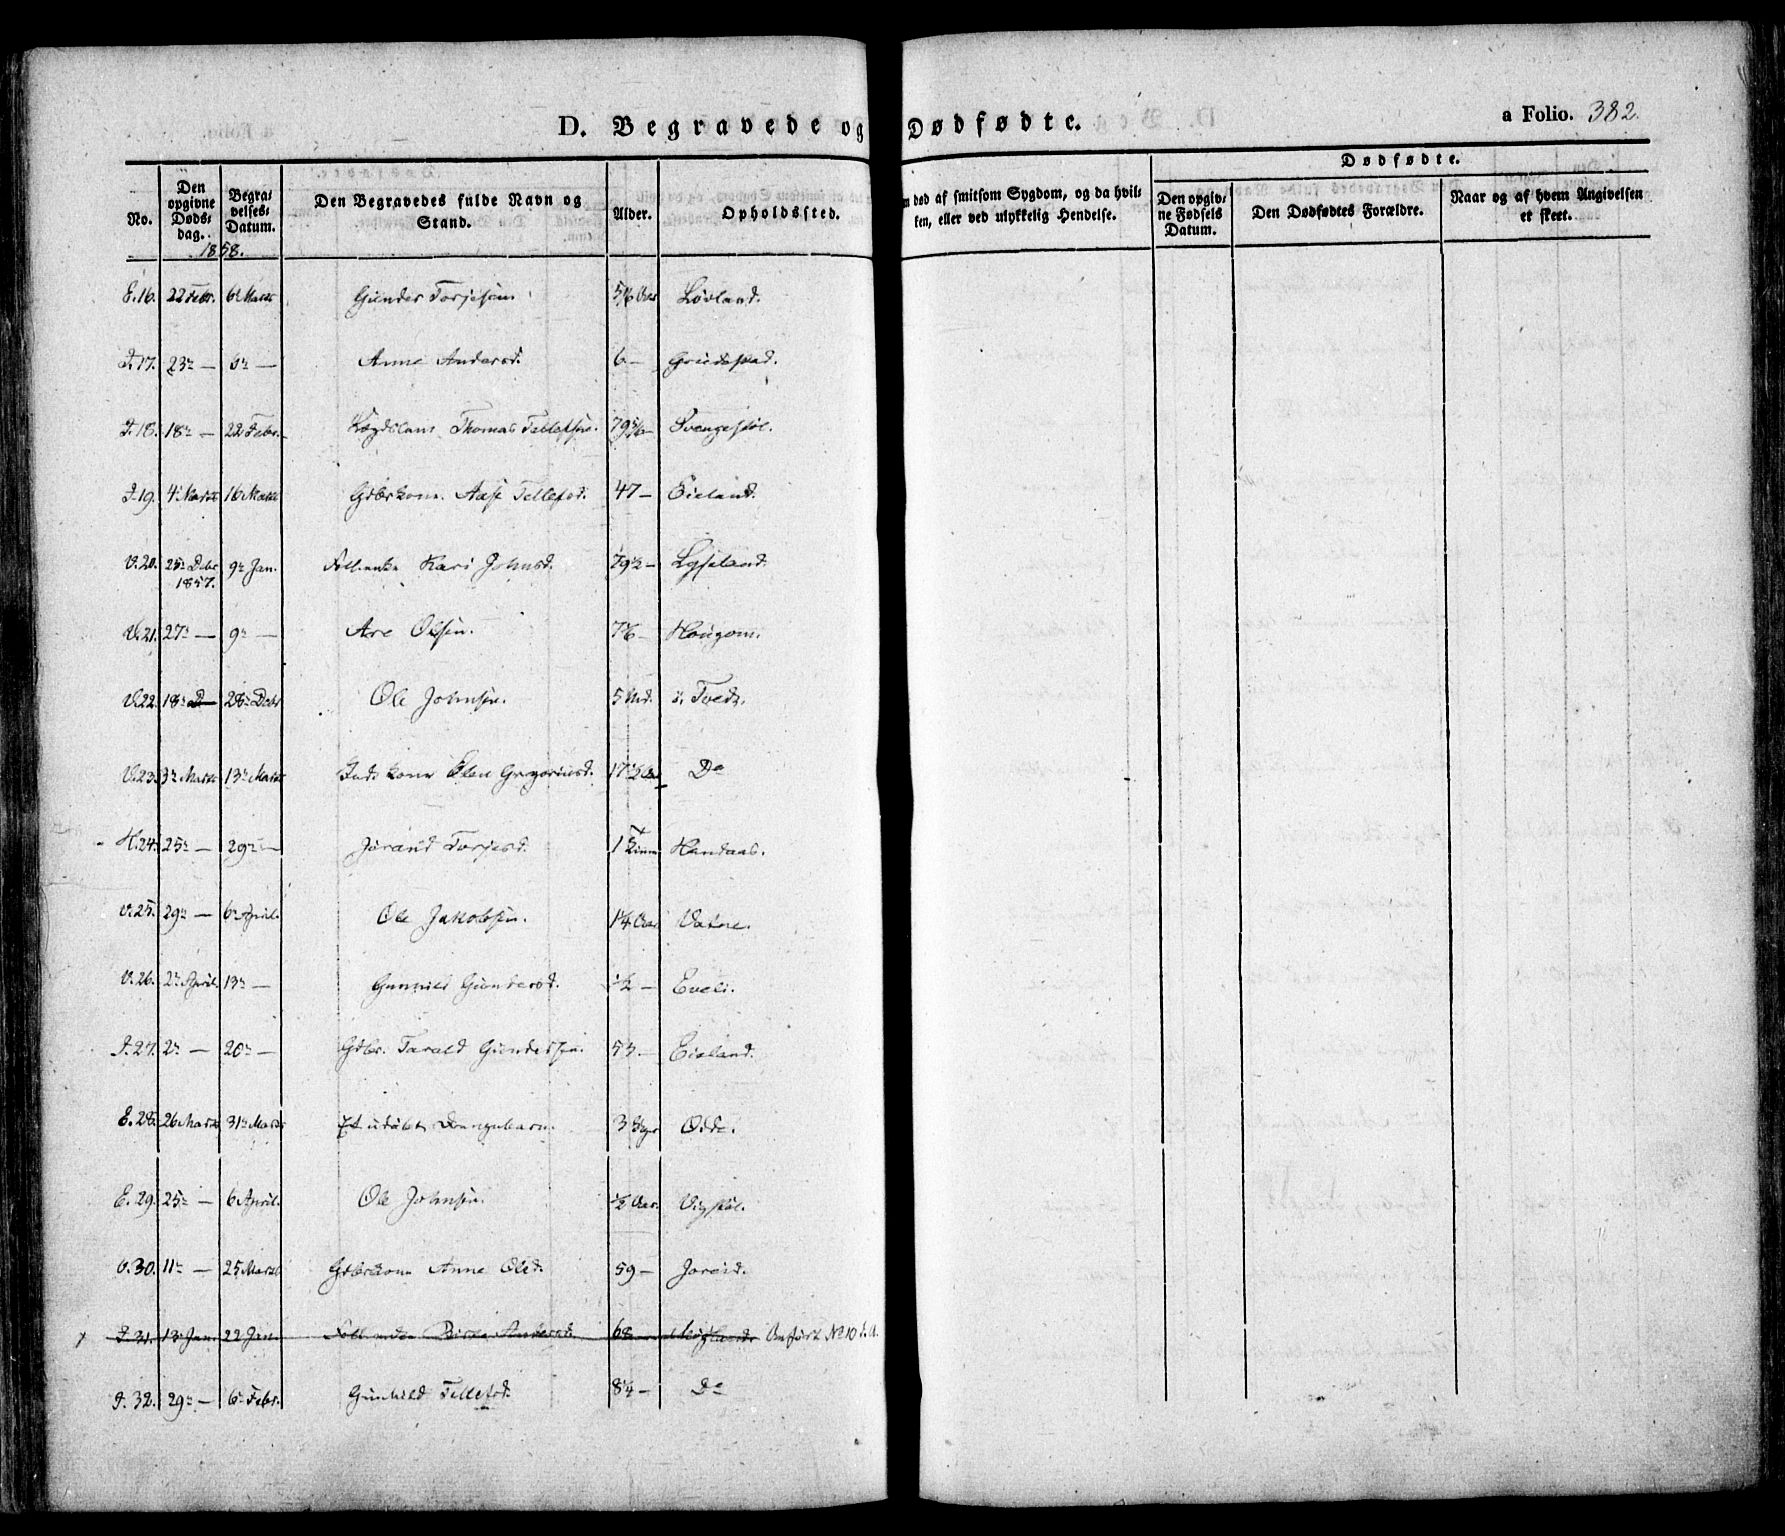 D. Begravede og Dødfødte.
a Folio. 382.
No.
Den opgivne Døds-dag.
Begra-velses-Datum.
Den Begravedes fulde Navn og Stand.
Alder.
Opholdssted.
m død af smitsom Sygdom, og da hvil-ken, eller ved ulykkelig Hendelse.
Dødfødte.
Den opgiv-ne Fødsels Datum.
Den Dødfødtes Forældre.
Naar og af hvem Angivelsen et skeet.
1858.
E.16. 22 Febr. 6te Marts Gunder Torjesen. Løvland.
J.17. 23de — 6te — Anne Andersd. 6 —
J.18. 18de — 22 Febr. — Lægdslam Thomas Tellefsen. Svengestøl.
J.19. 4de Marts 16 Marts Gdbrkone Aase Tellefsd. 47 — Eieland.
V.20. 25de Debr 1857. 9de Jan. Follenke Kari Johnsd. 79½ — Lyseland.
V.21. 27de — 9de — Are Olsen. Hougom.
V.22. 18de — 28de Debr Ole Johnsen. 5 Md. i. Tvedt.
V.23. 3de Marts 13de Marts Inds. kone Elen Gregoriusd. Do
H.24. 25de — 29de — Jørand Torjesd. 1 Time Handaas.
V.25. 29de — 6te April. Ole Jakobsen. 1¼ Aar Vatne.
V.26. 2den April. 13de — Gunnild Gundersd. ½ — Eveli.
J.27. 2den — 20de — Gdbr. Tarald Gundersen. 53 — Eieland.
E.28. 26 Marts 31te Marts Et udøbt Drengebarn. 3 Dage Odde.
E.29. 25de — 6 April. Ole Johnsen. ½ Aar. Vigstøl.
V.30. 11te — 25 Marts Gdbrkone Anne Olsd. 59 — Joreid.
J.31. 13de Jan. 22 Jan. Andersd. 68 Anført No 10 d. A.
J.32. 29de — 6te Febr. Gunhild Tellefsd. 8¼ — Do